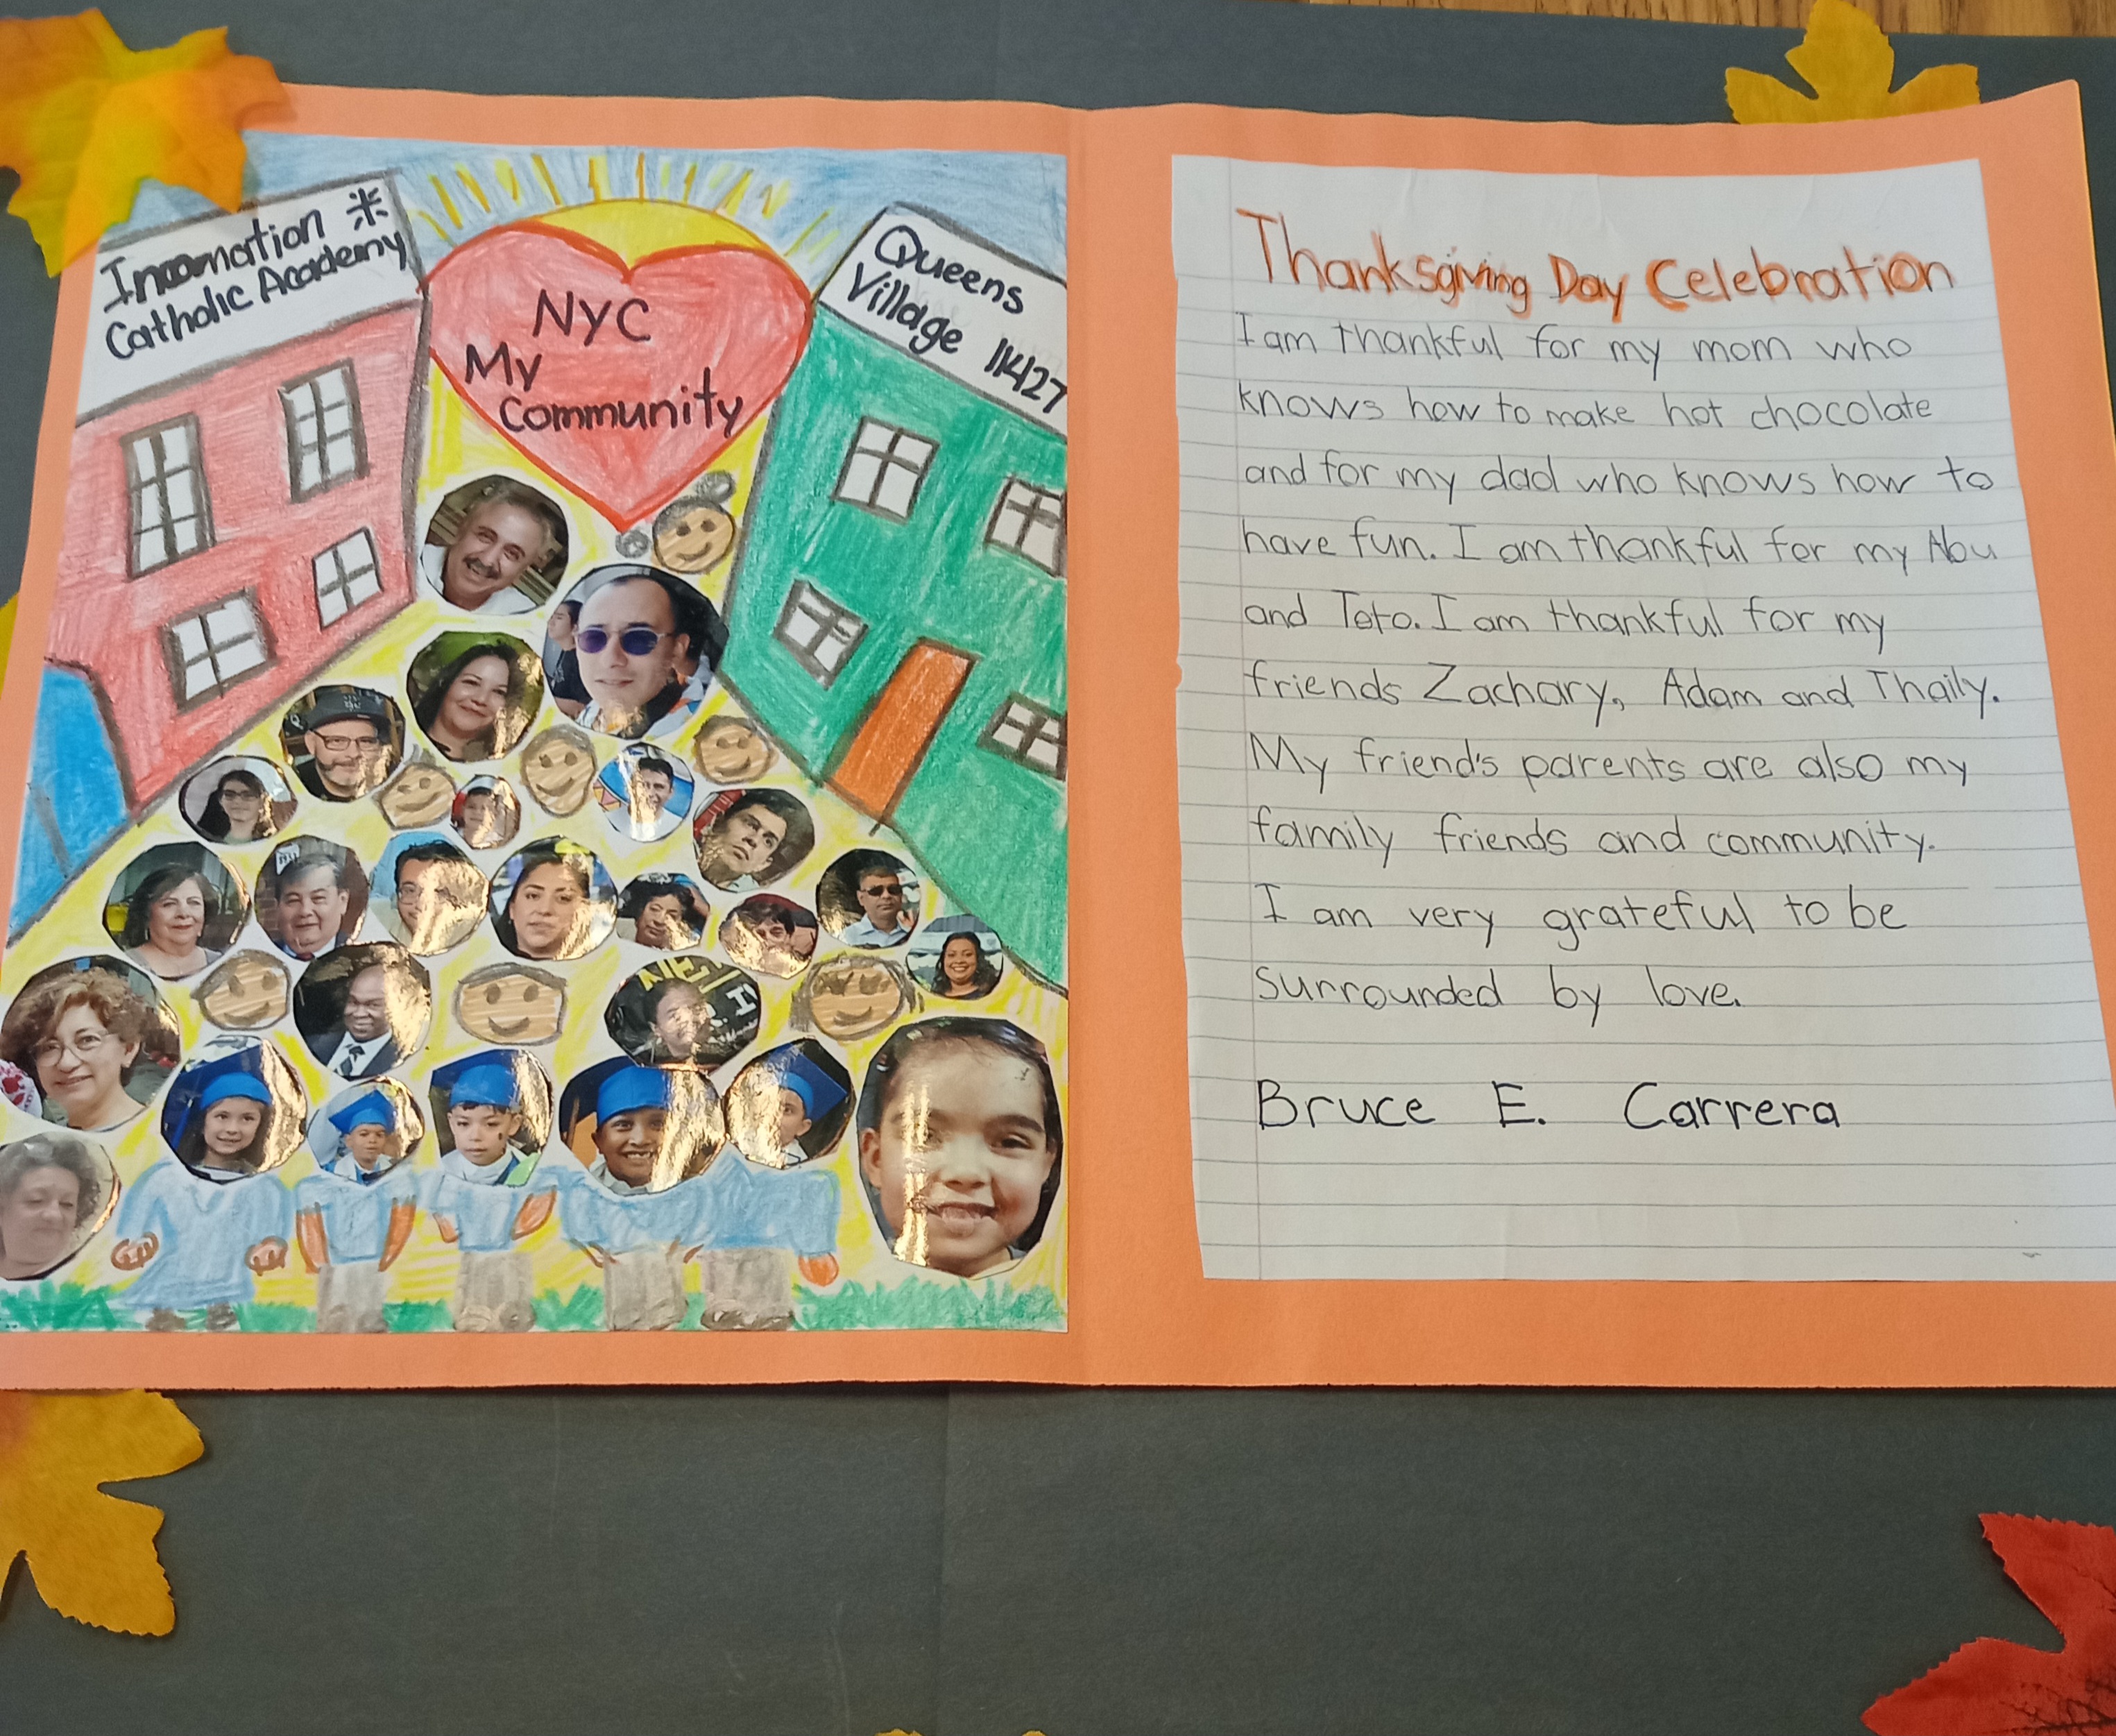 Incarnation
Catholic Academy
NYC
My
Community
Queens
Village 11427
Thanksgiving Day Celebration
I am thankful for my mom who
knows how to make hot chocolate
and for my dad who knows how to
have fun. I am thankful for my Abu
and Toto. I am thankful for my
friends Zachary, Adam and Thaily.
My friend's parents are also my
family friends and community.
I am very grateful to be
surrounded by love.
Bruce E. Carrera